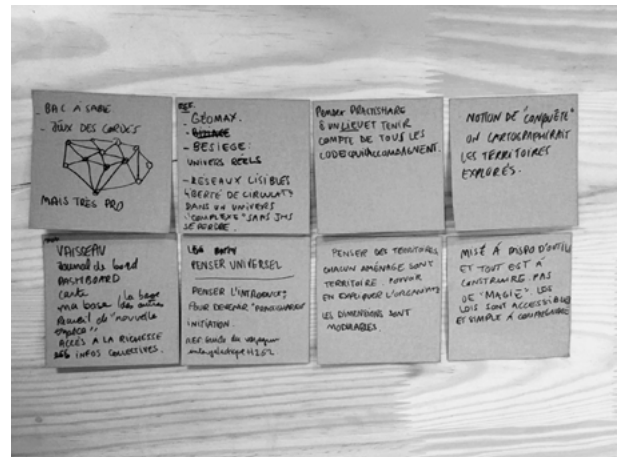 BAC À SABLE
- JEUX DES CORDES
MAIS TRÈS PRO
REF.
- GÉOMAX.
- BESIEGE:
UNIVERS RÉELS
- RÉSEAUX LISIBLES
LIBERTÉ DE CIRCULAT°
DANS UN UNIVERS
"COMPLEXE" SANS JMS
SE PERDRE.
PENSER PRACTISHARE
À UN LIEU ET TENIR
COMPTE DE TOUS LES
CODES QUI L'ACCOMPAGNENT.
NOTION DE "CONQUÊTE"
ON CARTOGRAPHIRAIT
LES TERRITOIRES
EXPLORÉS.
VAISSEAU
Journal de bord
DASHBOARD
carte
ma base / la base des autres
Accueil de "nouvelle
ACCÈS A LA RICHESSE
DES INFOS COLLECTIVES.
PENSER UNIVERSEL
PENSER L'INTRODUCT°
POUR DEVENIR "PRACTISHARER"
INITIATION.
REF Guide du voyageur
intergalactique H2G2
PENSER DES TERRITOIRES
CHACUN AMÉNAGE SON
TERRITOIRE. POUVOIR
EN EXPLIQUER L'ORGANISAT°
LES DIMENSIONS SONT
MODULABLES.
MISE À DISPO D'OUTILS
ET TOUT EST À
CONSTRUIRE. PAS
DE "MAGIE". LES
LOIS SONT ACCESSIBLES
ET SIMPLE À COMPRENDRE